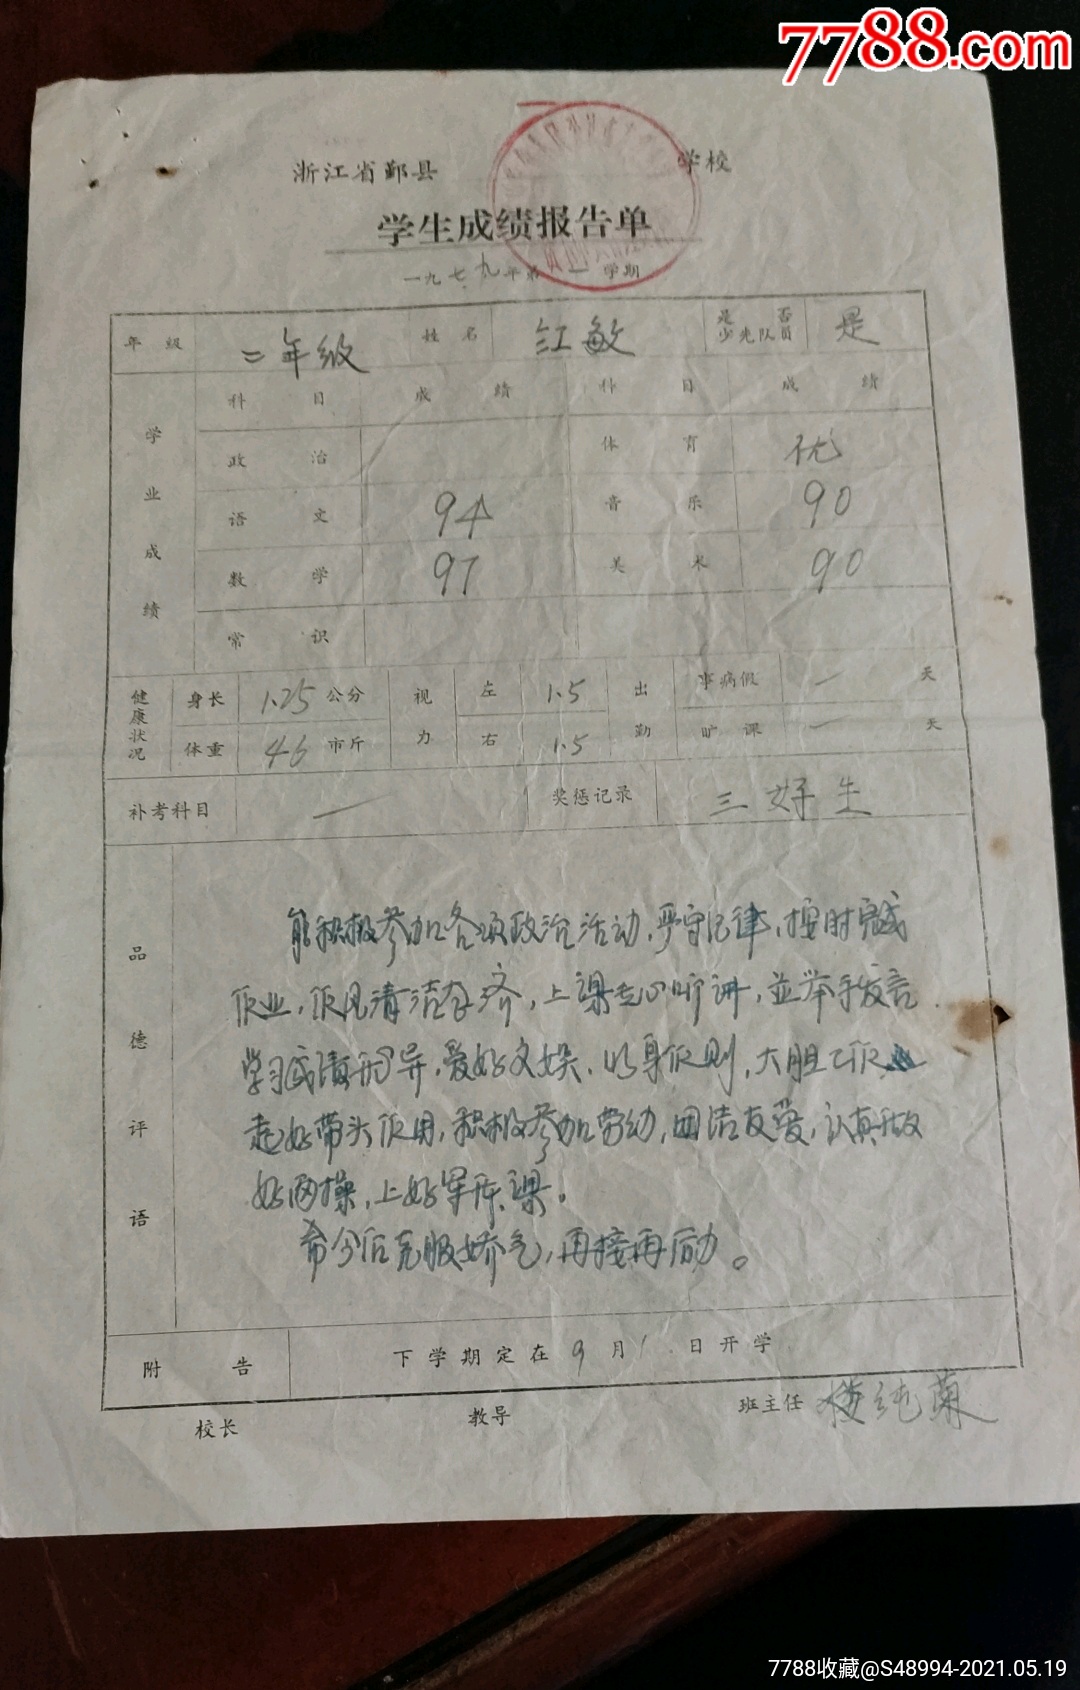 7788.com
浙江省鄞县 学校
学生成绩报告单
一九七九年第 一 学期
年级 二年级 姓名 红敏 是否少先队员 是
学业成绩
科目 成绩 科目 成绩
政治 体育 优
语文 94 音乐 90
数学 97 美术 90
常识
健康状况 身长 1.25 公分 视力 左 1.5 出勤 事病假 一 天
体重 46 市斤 右 1.5 旷课 一 天
补考科目 一 奖惩记录 三好生
品德评语
能积极参加各项政治活动,严守纪律,按时完成
作业,作风清洁存齐,上课专心听讲,並举手发言
学习成绩优异,爱好文娱,以身作则,大胆工作
起好带头作用,积极参加劳动,团结友爱,认真做
好两操,上好军体课。
希今后克服娇气,再接再励。
附告 下学期定在9月1日开学
校长 教导 班主任 楼纯菊
7788收藏@S48994-2021.05.19